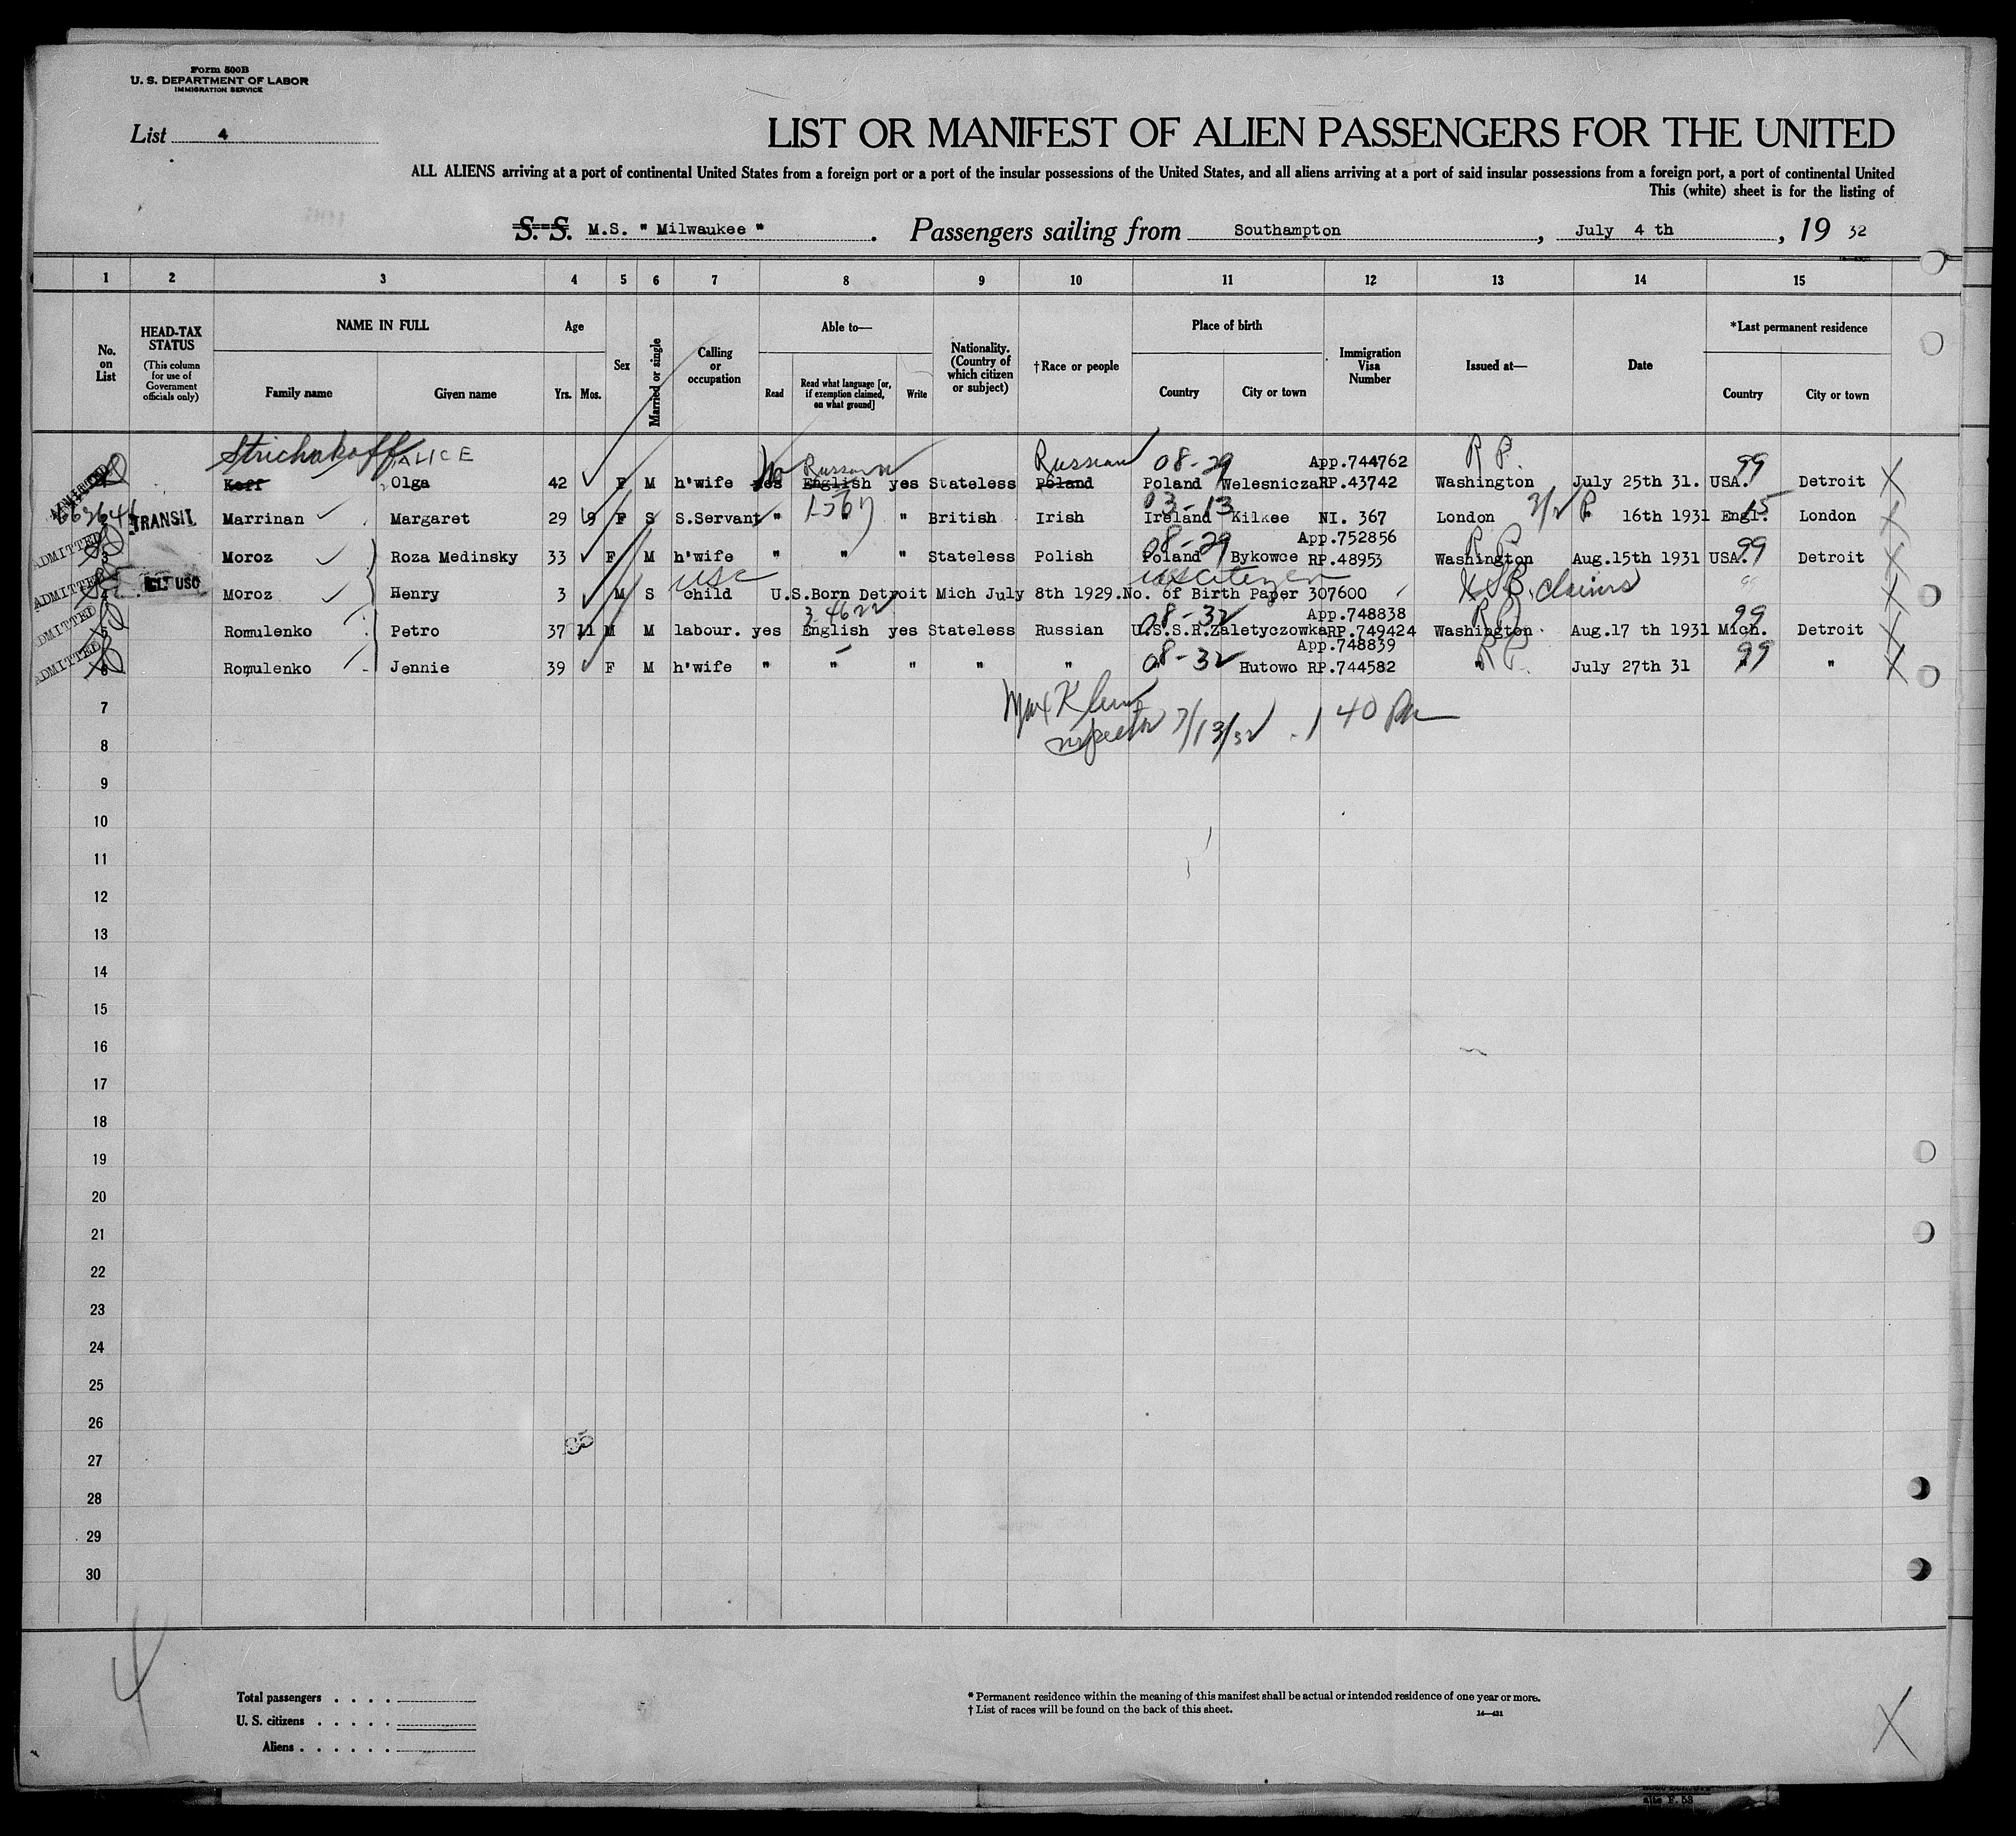 Form 500B
U. S. DEPARTMENT OF LABOR
IMMIGRATION SERVICE
List 4
LIST OR MANIFEST OF ALIEN PASSENGERS FOR THE UNITED
ALL ALIENS arriving at a port of continental United States from a foreign port or a port of the insular possessions of the United States, and all aliens arriving at a port of said insular possessions from a foreign port, a port of continental United
This (white) sheet is for the listing of
S. S. M.S. " Milwaukee " . Passengers sailing from Southampton , July 4 th , 19 32
1 2 3 4 5 6 7 8 9 10 11 12 13 14 15
No. on List
HEAD-TAX STATUS
(This column for use of Government officials only)
NAME IN FULL
Family name Given name
Age
Yrs. Mos.
Sex
Married or single
Calling or occupation
Able to—
Read
Read what language [or, if exemption claimed, on what ground]
Write
Nationality. (Country of which citizen or subject)
†Race or people
Place of birth
Country City or town
Immigration Visa Number
Issued at—
Date
*Last permanent residence
Country City or town
Strichakoff ALICE Russian Russian 08-29 App.744762 R P. 99
ADMITTED Koff Olga 42 F M h'wife yes English yes Stateless Poland Poland Welesnicza RP.43742 Washington July 25th 31. USA. Detroit
1567 03-13 3/2 P 15
TRANSIT Marrinan Margaret 29 9 F S S.Servant " " " British Irish Ireland Kilkee NI. 367 London " 16th 1931 Engl. London
08-29 App.752856 R P 99
ADMITTED 3 Moroz Roza Medinsky 33 F M h'wife " " " Stateless Polish Poland Bykowce RP.48953 Washington Aug.15th 1931 USA. Detroit
USC US Citizen U.S.B. claims
ADMITTED 4 USC Moroz Henry 3 M S child U.S.Born Detroit Mich July 8th 1929.No. of Birth Paper 307600
3 4622 08-32 App.748838 R P 99
ADMITTED 5 Romulenko Petro 37 11 M M labour. yes English yes Stateless Russian U.S.S.R. Zaletyczowka RP.749424 Washington. Aug.17 th 1931 Mich. Detroit
08-32 App.748839 R P. 99
ADMITTED 6 Romulenko Jennie 39 F M h'wife " " " " " " Hutowo RP.744582 " July 27th 31 " "
7 Max Klein
8 Inspector 7/13/32 . 1 40 Pm
9
10
11
12
13
14
15
16
17
18
19
20
21
22
23
24
25
26
27
28
29
30
4
Total passengers . . . .
U. S. citizens . . . . .
Aliens . . . . . .
* Permanent residence within the meaning of this manifest shall be actual or intended residence of one year or more.
† List of races will be found on the back of this sheet.
14—431
X